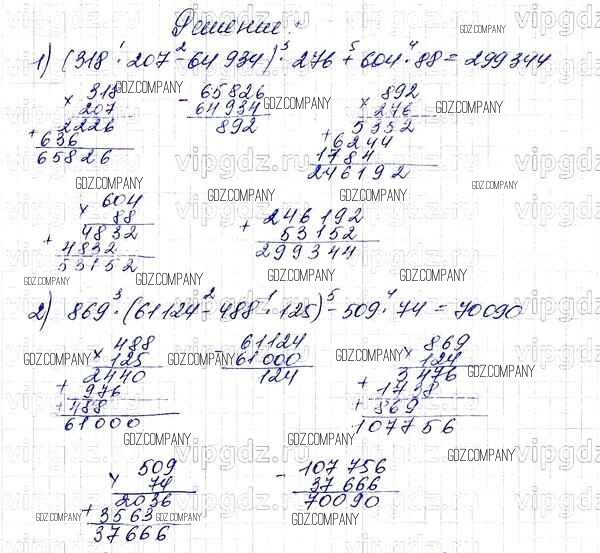 Решение:
1) (318 · 207 - 64 934) · 276 + 604 · 88 = 299344
318
× 207
2226
+ 636
65826
- 65826
64934
892
892
× 276
5352
+ 6244
1784
246192
604
× 88
4832
+ 4832
53152
+ 246192
53152
299344
2) 869 · (61124 - 488 · 125) - 509 · 74 = 70090
488
× 125
2440
+ 976
+ 488
61000
- 61124
61000
124
869
× 124
3476
+ 1738
+ 869
107756
509
× 74
2036
+ 3563
37666
- 107 756
37 666
70090
GDZ.COMPANY
vipgdz.ru